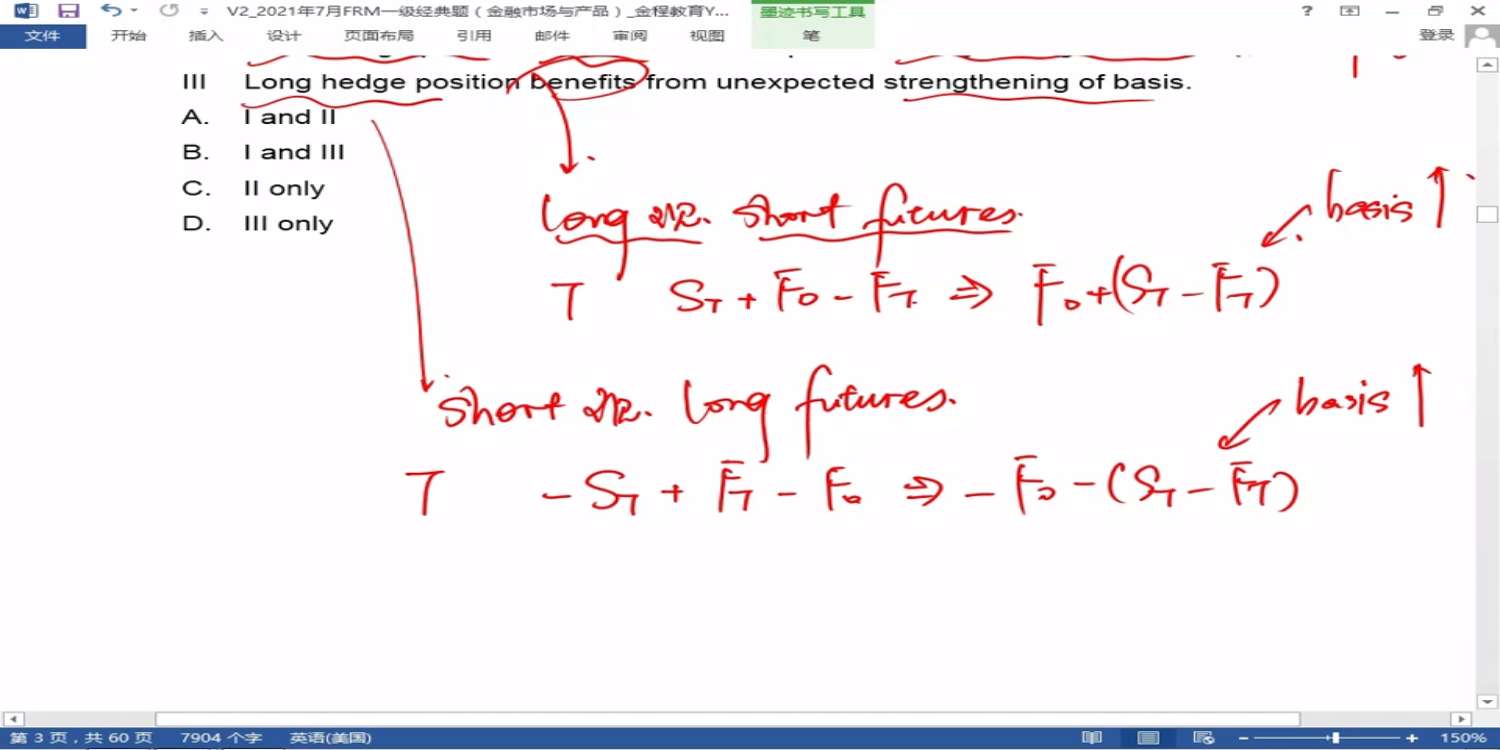 V2_2021年7月FRM一级经典题（金融市场与产品）_金程教育Y... 墨迹书写工具 ?
文件 开始 插入 设计 页面布局 引用 邮件 审阅 视图 笔 登录
III Long hedge position benefits from unexpected strengthening of basis.
A. I and II
B. I and III
C. II only
D. III only
basis ↑
long 现. short futures.
T S_T + F_0 - F_T ⇒ F_0 + (S_T - F_T)
basis ↑
short 现. long futures.
T - S_T + F_T - F_0 ⇒ - F_0 - (S_T - F_T)
第 3 页，共 60 页 7904 个字 英语(美国) 150%